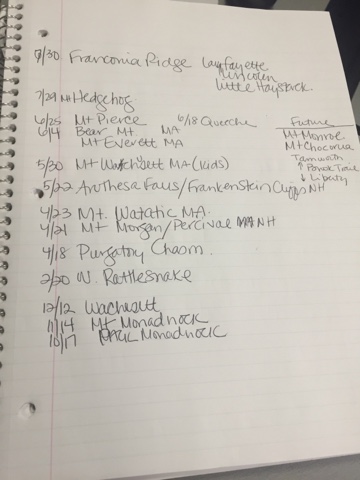 7/30 Franconia Ridge Layfayette
Lincolen
Little Haystack.
7/29 NH Hedgehog
6/25 Mt Pierce 6/18 Queeche
6/4 Bear Mt. MA
Mt Everett MA
Future
Mt Monroe
Mt Chocorua
Tamworth
↑
↓ Liberty
5/30 Mt Watchusett MA (kids)
5/22 Arethesa Falls/Frankenstein Cliffs NH
4/23 Mt. Watatic MA.
4/21 Mt Morgan/Percival NH
4/18 Purgatory Chasm.
2/20 W. Rattlesnake
12/12 Wachusett
11/14 Mt Monadnock
10/17 Pack Monadnock